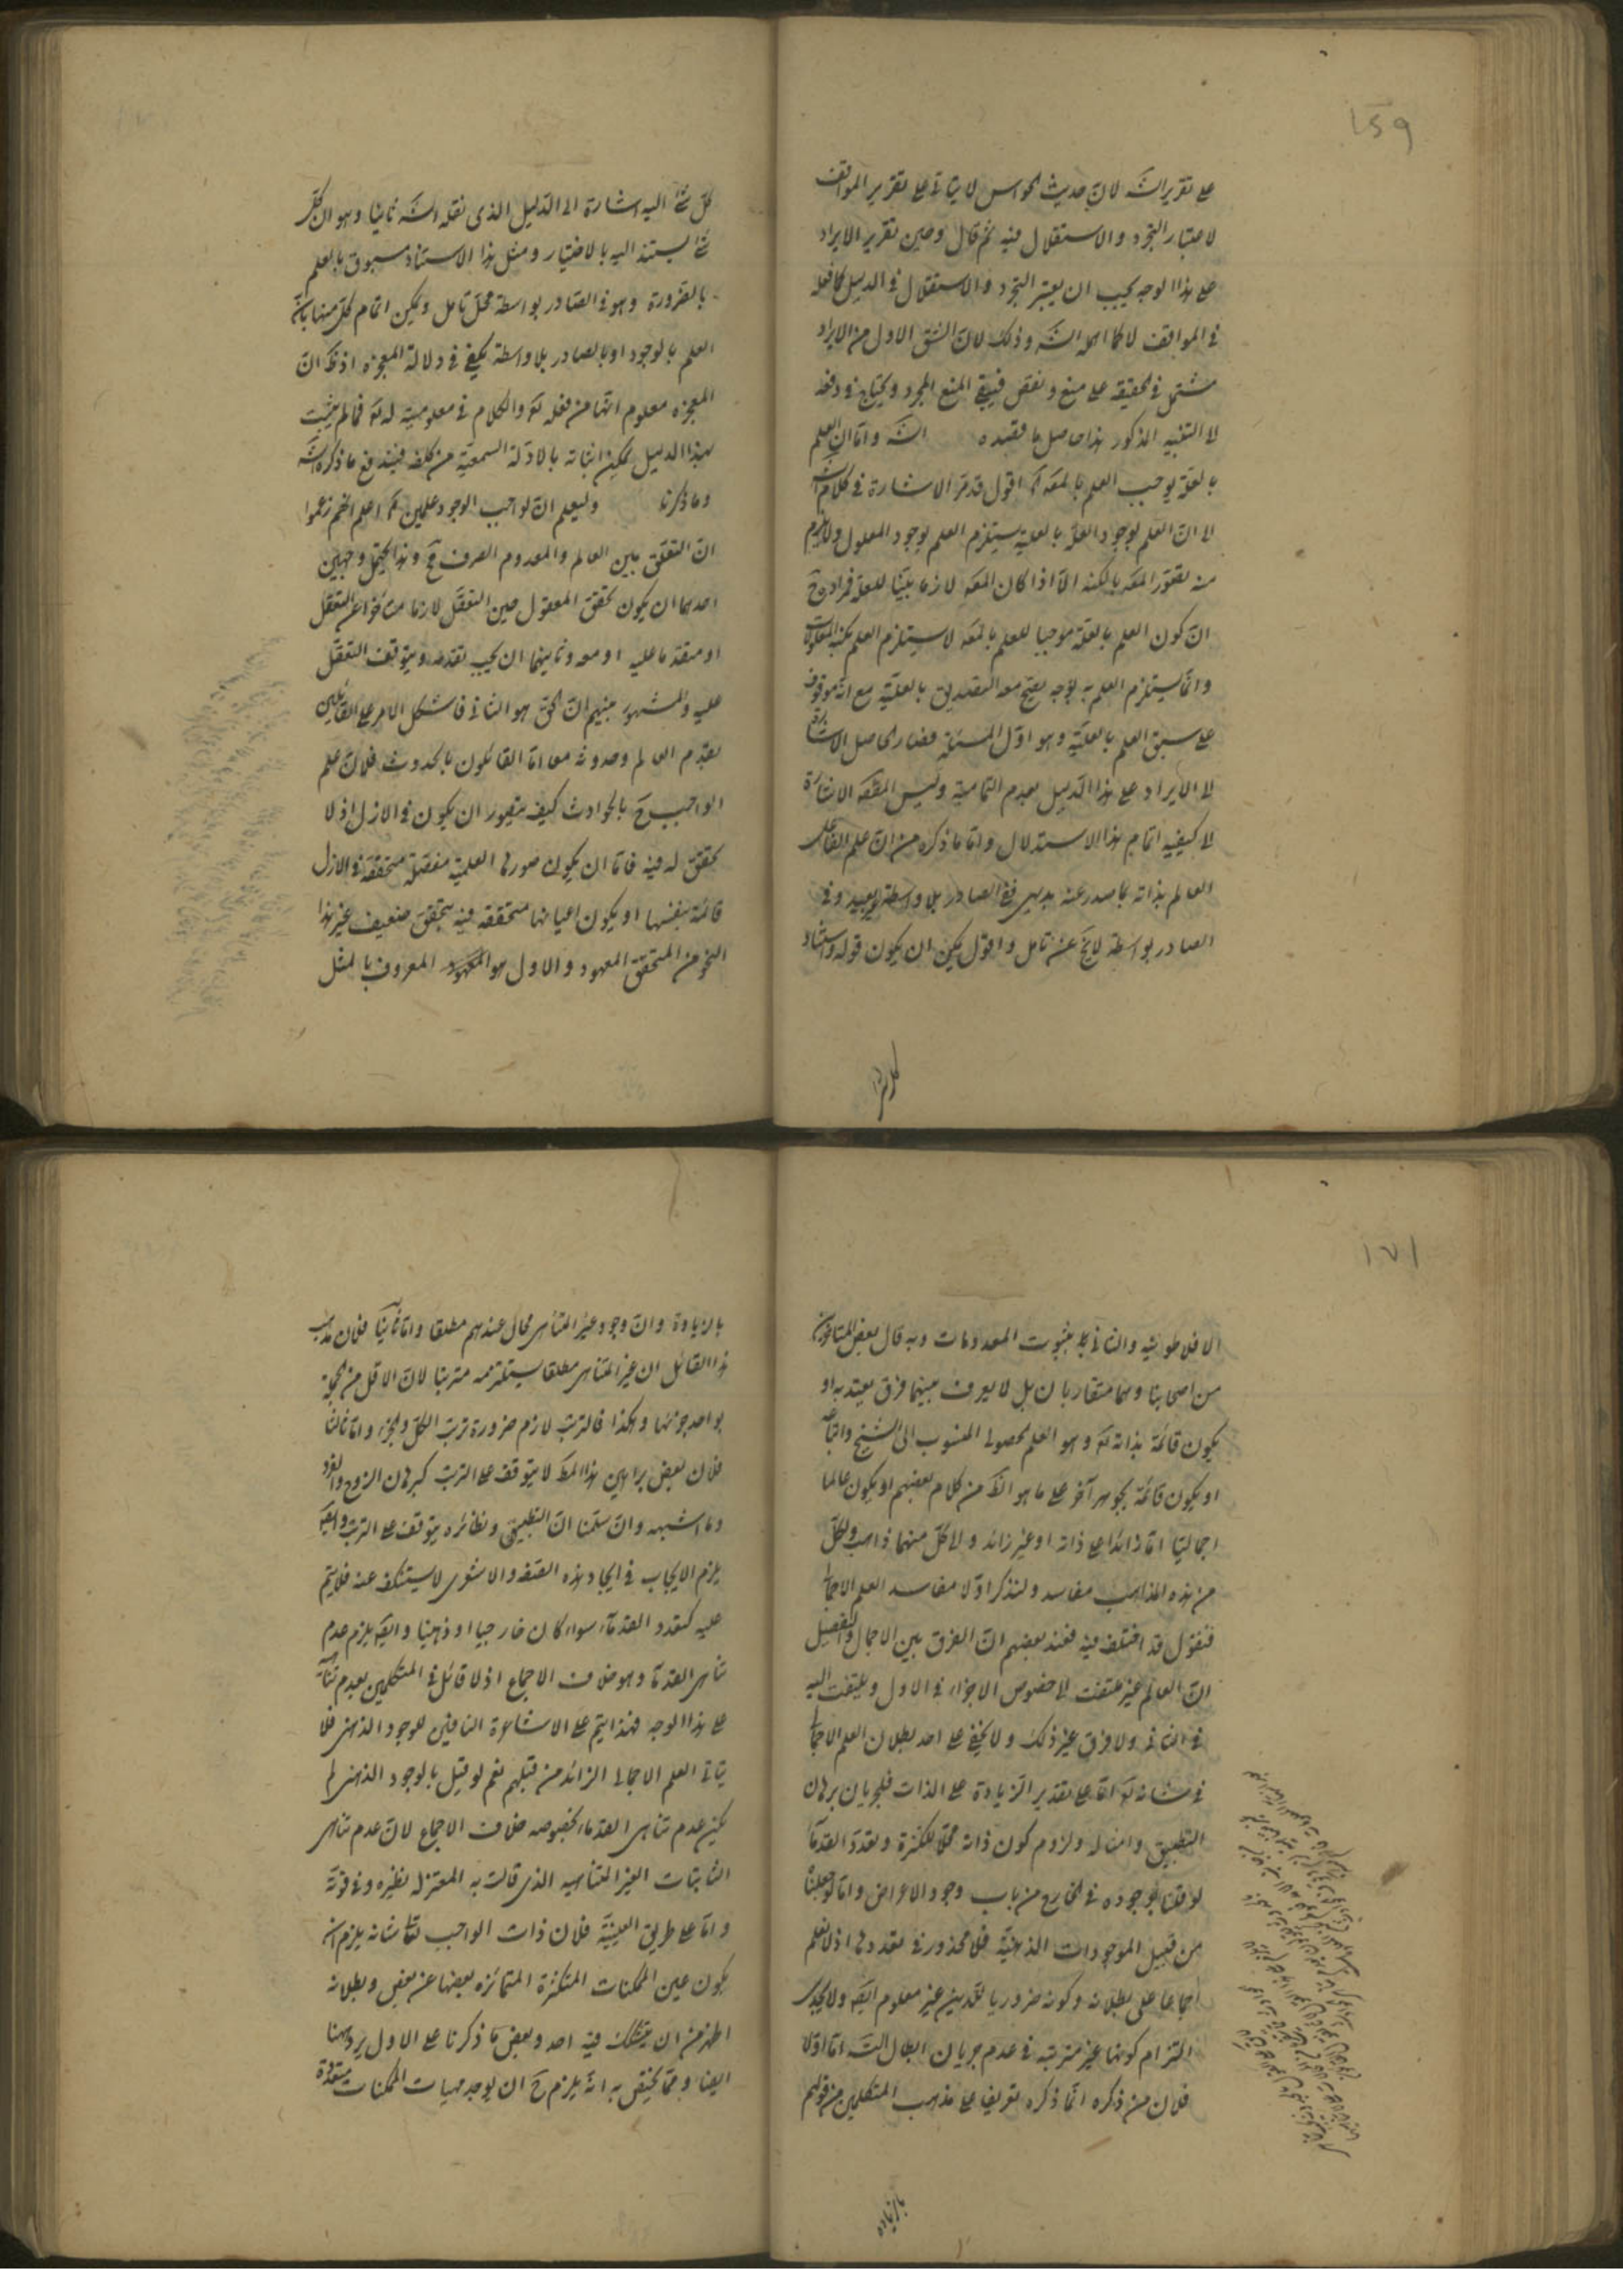 ١٥٩
على تقرير الشَ لان حديث الحواس لا يتأتى على تقرير المواقف
لاعتبار التجرد والاستقلال فيه ثم قال وحين تقرير الايراد
على هذا الوجه يجب ان يعتبر التجرد والاستقلال في الدليل كما فعله
في المواقف لا كما اهمله الشَ وذلك لان الشق الاول من الايراد
مشتمل في الحقيقة على منع ونقض فيبقى المنع المجرد ويحتاج في دفعه
الى التنبيه المذكور هذا حاصل ما قصده الشَ واما ان العلم
بالعلة يوجب العلم بالمعَه اقول قد مر الاشارة في كلام الشَ
الى ان العلم بوجود العلة بالعلية يستلزم العلم بوجود المعلول ولا يلزم
منه تصور المعَه بالكنه الا اذا كان المعَه لازما بينا للعلة فمراده حَ
ان كون العلم بالعلة موجبا للعلم بالمعَه لا يستلزم العلم بكنه المعلولات
وانما يستلزم العلم به بوجه يصح معه التصديق بالعلية مع انه موقوف
على سبق العلم بالعلية وهو اول المسئلة فصار الحاصل الاشارة
الى الايراد على هذا الدليل بعدم التمامية وليس المقصَه الاشارة
الى كيفية اتمام هذا الاستدلال واما ما ذكره من ان علم الفاعل
العالم بذاته بما صدر عنه بديهي ففي الصادر بلا واسطة غير بعيد وفي
الصادر بواسطة لا يخ عن تأمل واقول يمكن ان يكون قوله واستناد
كل شئ
كل شئ اليه اشارة الى الدليل الذي نقله الشَ ثانيا وهو ان كل
شئ يستند اليه بالاختيار ومثل هذا الاستناد مسبوق بالعلم
بالضرورة وهو في الصادر بواسطة محل تأمل ويمكن اتمام كل منها بان
العلم بالوجود او بالصادر بلا واسطة يكفي في دلالة المعجزة اذ ظَ ان
المعجزة معلوم انها من فعله تَه والكلام في معلوميته له تَه فما لم يثبت
بهذا الدليل يمكن اثباته بالادلة السمعية من كلفه فيندفع ما ذكره الشَ
وما ذكرنا وليعلم ان لواجب الوجود علمين ثم اعلم انهم زعموا
ان التعلق بين العالم والمعدوم الصرف مح وهذا يحتمل وجهين
احدهما ان يكون تحقق المعقول حين التعقل لازما متأخرا عن التعقل
او متقدما عليه او معه وثانيهما ان يجب تقدمه ويتوقف التعقل
عليه والمشهور بينهم ان الحق هو الثاني فاشكل الامر على القائلين
بقدم العالم وحدوثه معا اما القائلون بالحدوث فلان علم
الواجب حَ بالحوادث كيف يتصور ان يكون في الازل اذ لا
تحقق له فيه فاما ان يكون صورها العلمية مفصلة متحققة في الازل
قائمة بنفسها او يكون اعيانها متحققة فيه بتحقق ضعيف غير هذا
النحو من التحقق المعهود والاول هو المعروف بالمثل
١٧١
الافلاطونية والثاني بثبوت المعدومات وبه قال بعض المتأخرين
من اصحابنا وهما متقاربان بل لا يعرف بينهما فرق يعتد به او
يكون قائمة بذاته تَه وهو العلم الحصولي المنسوب الى الشيخ واتباعه
او يكون قائمة بجوهر آخر على ما هو الظَ من كلام بعضهم او يكون عالما
اجماليا اما زائدا على ذاته او غير زائد والى كل منهما ذاهب ولكل
من هذه المذاهب مفاسد ولنذكر اولا مفاسد العلم الاجمالي
فنقول قد اختلف فيه فعند بعضهم ان الفرق بين الاجمال والتفصيل
ان العالم غير ملتفت الى خصوص الاجزاء في الاول ويلتفت اليه
في الثاني ولا فرق غير ذلك ولا يخفى على احد بطلان العلم الاجمالي
في شأنه تَه اما على تقدير الزيادة على الذات فلجريان برهان
التطبيق وامثاله ولزوم كون ذاته محلا للكثرة وتعدد القدماء
لو قلنا بوجوده في الخارج من باب وجود الاعراض واما لو جعلنا
من قبيل الموجودات الذهنية فلا محذور في تعددها اذ لا نعلم
اجماعا على بطلانه وكونه ضروريا للدين غير معلوم ايضَه ولا يجدي
التزام كونها غير مترتبة في عدم جريان ابطال التسَ اما اولا
فلان من ذكره انما ذكره تعريفا على مذهب المتكلمين من قولهم
بالزيادة
بالزيادة وان وجود غير المتناهي محال عندهم مطلقا واما ثانيا فلان مذهب
هذا القائل ان غير المتناهي مطلقا يستلزمه مترتبا لان الاقل من الجملة
بواحد جزئها وهكذا فالترتب لازم ضرورة ترتب الكل والجزء واما ثالثا
فلان بعض براهين هذا المطَ لا يتوقف على الترتب كبرهان الزوج والفرد
وما اشبهه وان سلمنا ان التطبيق ونظائره يتوقف على الترتب وايضَه
يلزم الايجاب في ايجاد هذه الصفة والاشعري لا يستنكف عنه فلا يتم
عليه كتعدد القدماء سواء كان خارجيا او ذهنيا وايضَه يلزم عدم
تناهي القدماء وهو خلاف الاجماع اذ لا قائل في المتكلمين بعدم تناهيه
على هذا الوجه فهذا يتم على الاشاعرة النافين للوجود الذهني فلا
يتأتى العلم الاجمالي الزائد من قبلهم نعم لو قيل بالوجود الذهني لم
يكن عدم تناهي القدماء بخصوصه خلاف الاجماع لان عدم تناهي
الثابتات الغير المتناهية الذي قالت به المعتزلة نظيره وفي قوته
واما على طريق العينية فلان ذات الواجب تعالى شانه يلزم ان
يكون عين الممكنات المتكثرة المتمائزة بعضها عن بعض وبطلانه
اظهر من ان يتشكك فيه احد وبعض ما ذكرنا على الاول يرد ههنا
ايضا ومما يختص به انه يلزم حَ ان يوجد مهيات الممكنات متعددة